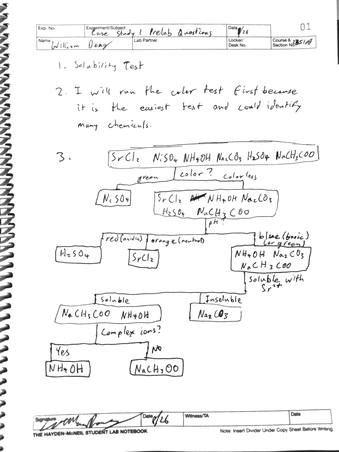 Exp. No.
Experiment/Subject
Case Study 1 Prelab Questions
Date
/26
01
Name
William
Lab Partner
Locker/
Desk No.
Course &
Section No.
1. Solubility Test
2. I will run the color test first because
it is the easiest test and could identify
many chemicals.
3.
SrCl2 NiSO4 NH4OH Na2CO3 H2SO4 NaCH3COO
color?
green
colorless
NiSO4
SrCl2 NH4OH Na2CO3
H2SO4 NaCH3COO
pH?
red(acidic)
orange(neutral)
blue(basic)
(or green)
H2SO4
SrCl2
NH4OH Na2CO3
NaCH3COO
Soluble with
Sr2+
Soluble
Insoluble
NaCH3COO NH4OH
Na2CO3
Complex ions?
Yes
No
NH4OH
NaCH3OO
Signature
Date
/26
Witness/TA
Date
THE HAYDEN-McNEIL STUDENT LAB NOTEBOOK
Note: Insert Divider Under Copy Sheet Before Writing